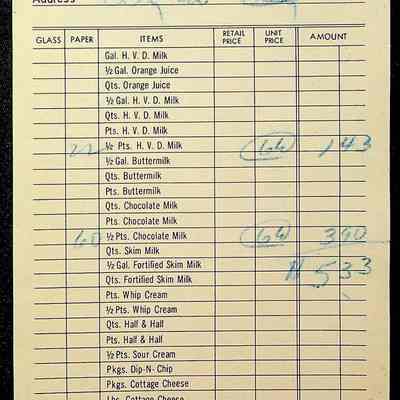 Address
GLASS PAPER ITEMS RETAIL PRICE UNIT PRICE AMOUNT
Gal. H. V. D. Milk
½ Gal. Orange Juice
Qts. Orange Juice
½ Gal. H. V. D. Milk
Qts. H. V. D. Milk
Pts. H. V. D. Milk
22 ½ Pts. H. V. D. Milk 143
½ Gal. Buttermilk
Qts. Buttermilk
Pts. Buttermilk
Qts. Chocolate Milk
Pts. Chocolate Milk
60 ½ Pts. Chocolate Milk 390
Qts. Skim Milk
½ Gal. Fortified Skim Milk 533
Qts. Fortified Skim Milk
Pts. Whip Cream
½ Pts. Whip Cream
Qts. Half & Half
Pts. Half & Half
½ Pts. Sour Cream
Pkgs. Dip-N- Chip
Pkgs. Cottage Cheese
Lbs. Cottage Cheese